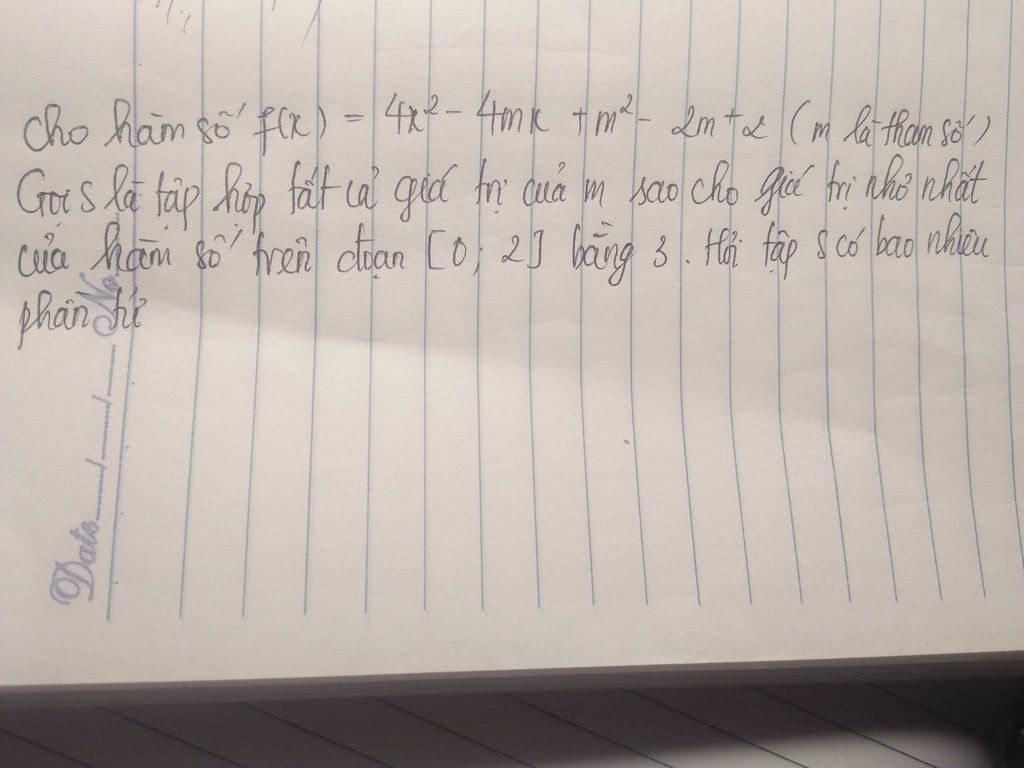 cho hàm số f(x) = 4x² - 4mx + m² - 2m + 2 ( m là tham số )
Gọi S là tập hợp tất cả giá trị của m sao cho giá trị nhỏ nhất
của hàm số trên đoạn [0; 2] bằng 3. Hỏi tập S có bao nhiêu
phần tử
Date No